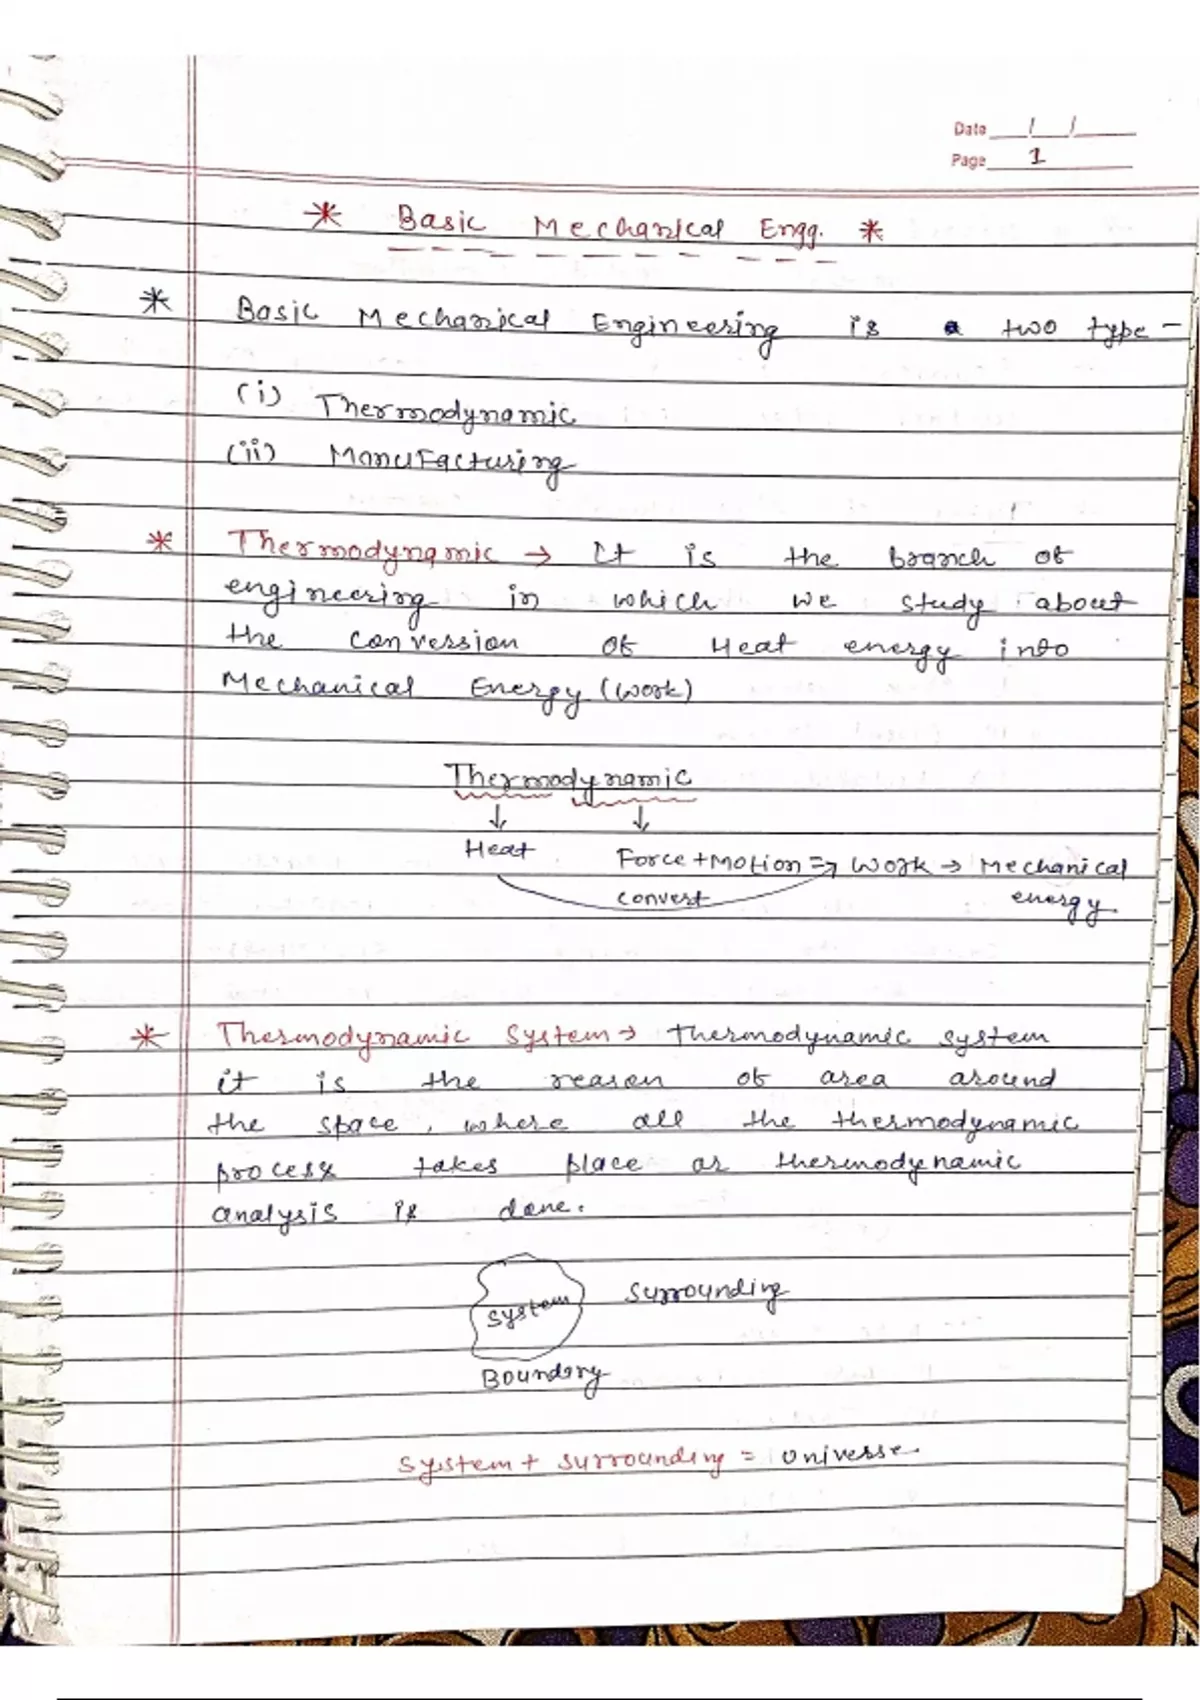 Date / /
Page 1
* Basic Mechanical Engg. *
* Basic Mechanical Engineering is a two type -
(i) Thermodynamic
(ii) Manufacturing
* Thermodynamic → It is the branch of
engineering in which we study about
the conversion of Heat energy into
Mechanical Energy (work)
Thermodynamic
↓ ↓
Heat Force + Motion => Work → Mechanical
convert energy.
* Thermodynamic System → thermodynamic system
it is the reasen of area around
the space, where all the thermodynamic
process takes place or thermodynamic
analysis is done.
System Surrounding
Boundry
System + surrounding = Universe.